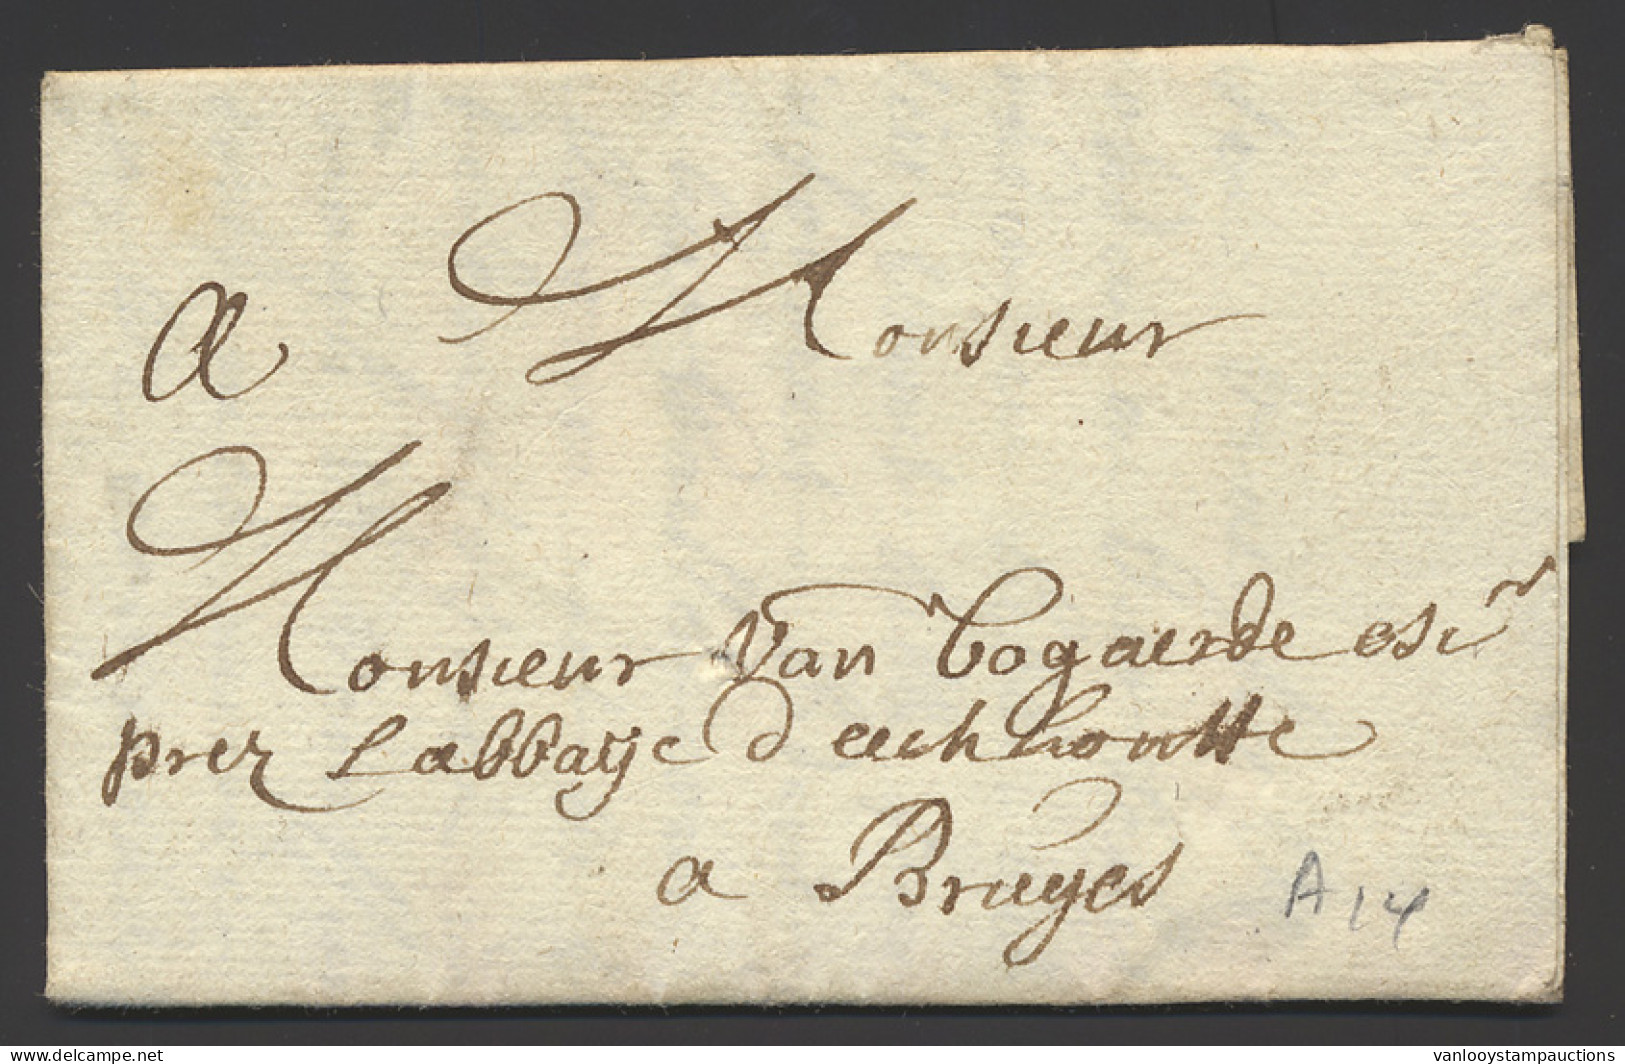 A Monsieur
Monsieur Van Bogaerde esc.r
prez Labbaÿe d'eechhoutte
a Bruges
A 14
www.delcampe.net
vanlooystampauctions